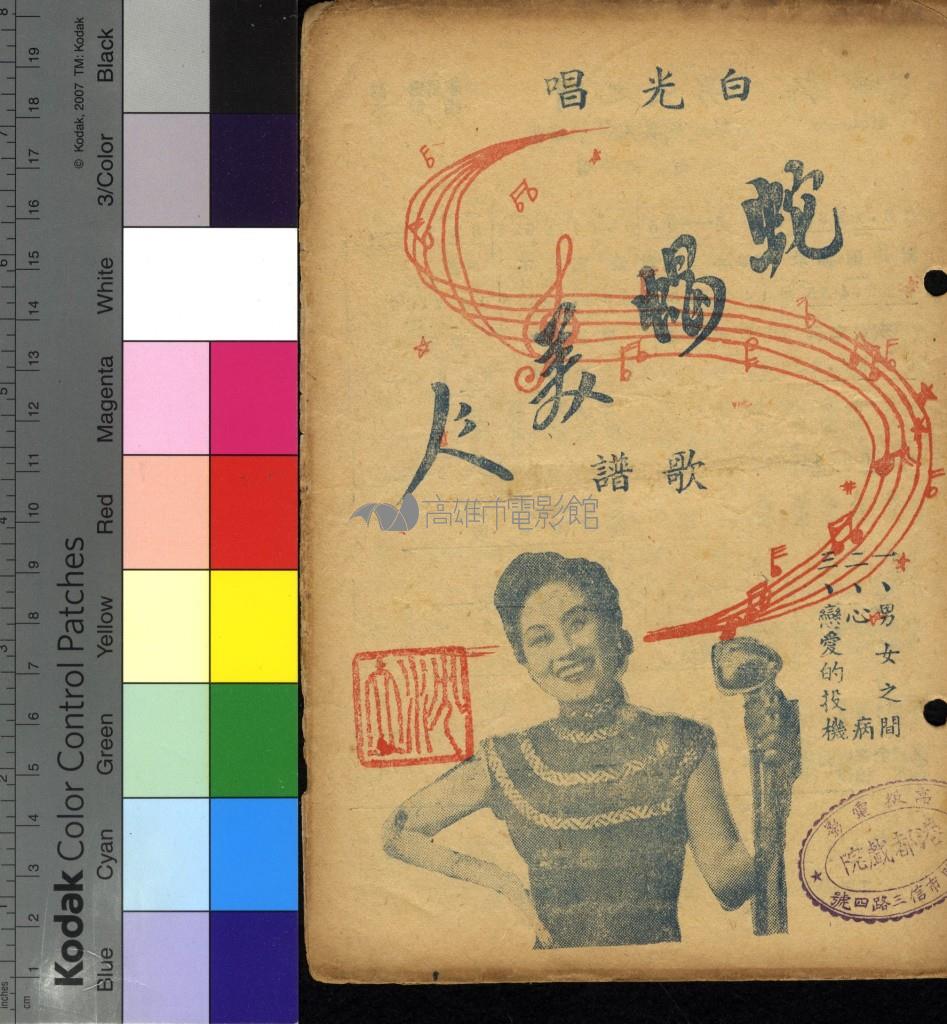 Kodak Color Control Patches
© Kodak, 2007 TM: Kodak
Blue Cyan Green Yellow Red Magenta White 3/Color Black
inches
1 2 3 4 5 6 7 8
cm
1 2 3 4 5 6 7 8 9 10 11 12 13 14 15 16 17 18 19
白光唱
蛇蝎美人
歌譜
高雄市電影館
一、男女之間
二、心病
三、戀愛的投機
高級電影
港都戲院
市信三路四號